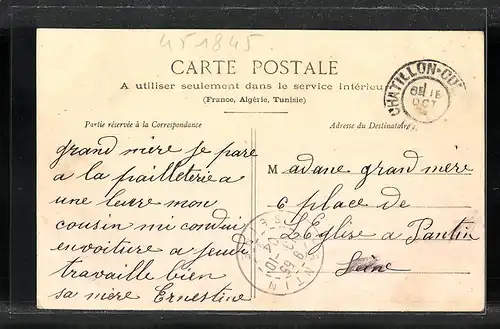 451845
CARTE POSTALE
A utiliser seulement dans le service intérieur
(France, Algérie, Tunisie)
CHATILLON-
18
OCT
Partie réservée à la Correspondance
Adresse du Destinataire
grand mère je pare
a la pailleterie a
une leure mon
cousin mi condui
envoiture a jeudi
travaille bien
sa mère Ernestine
Madane grand mère
6 place de
L'Eglise a Pantin
Seine